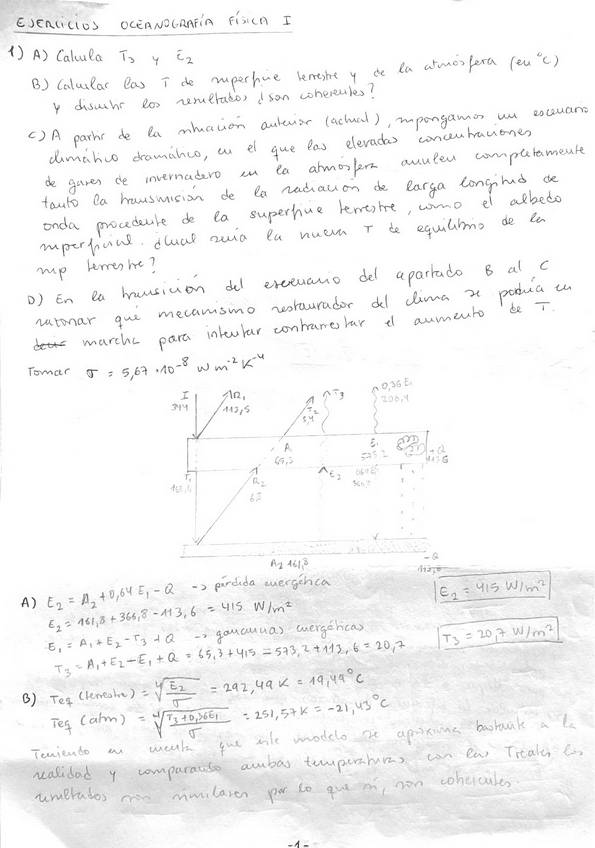 EJERCICIOS OCEANOGRAFÍA FÍSICA I
1) A) Calcula T3 y E2
B) Calcular las T de superficie terrestre y de la atmósfera (en °C)
y discutir los resultados ¿son coherentes?
C) A partir de la situación anterior (actual), supongamos un escenario
climático dramático, en el que las elevadas concentraciones
de gases de invernadero en la atmósfera anulen completamente
tanto la transmisión de la radiación de larga longitud de
onda procedente de la superficie terrestre, como el albedo
superficial. ¿Cuál sería la nueva T de equilibrio de la
sup terrestre?
D) En la transición del escenario del apartado B al C
razonar qué mecanismo restaurador del clima se podría en
marcha para intentar contrarrestar el aumento de T.
Tomar σ = 5,67·10⁻⁸ W m⁻² K⁻⁴
I R1 T2 T3 0,36E1
344 113,5 200,4
A1 E1 +Q
65,3 573,2 113,6
T1 R2 E2
6,8 366,8
A2 161,8 -Q
A) E2 = A2 + 0,64 E1 - Q -> pérdida energética
E2 = 161,8 + 366,8 - 113,6 = 415 W/m²
E2 = 415 W/m²
E1 = A1 + E2 - T3 + Q -> ganancias energéticas
T3 = A1 + E2 - E1 + Q = 65,3 + 415 - 573,2 + 113,6 = 20,7
T3 = 20,7 W/m²
B) Teq (terrestre) = ⁴√(E2/σ) = 292,49 K = 19,49 °C
Teq (atm) = ⁴√((T3 + 0,36E1)/σ) = 251,57 K = -21,43 °C
Teniendo en cuenta que este modelo se aproxima bastante a la
realidad y comparando ambas temperaturas con las T reales los
resultados son similares por lo que sí, son coherentes.
-1-